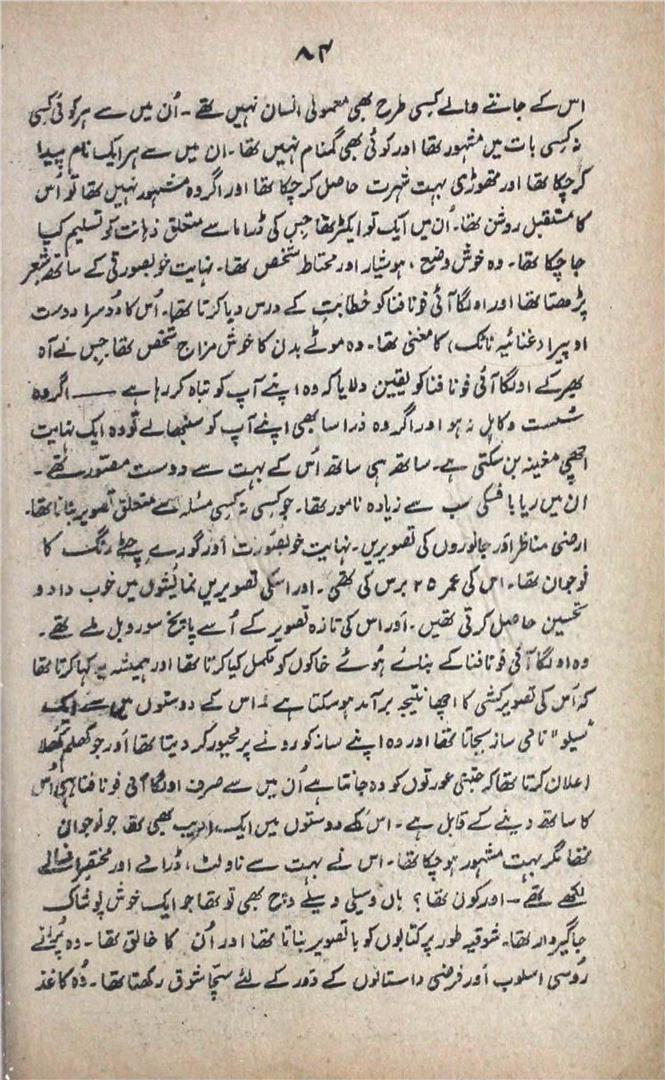 ۸۴
اس کے جاننے والے کسی طرح بھی معمولی انسان نہیں تھے ۔ اُن میں سے ہر کوئی کسی
نہ کسی بات میں مشہور تھا اور کوئی بھی گمنام نہیں تھا۔ ان میں سے ہر ایک نام پیدا
کر چکا تھا اور تھوڑی بہت شہرت حاصل کر چکا تھا اور اگر وہ مشہور نہیں تھا تو اُس
کا مستقبل روشن تھا۔ اُن میں ایک تو ایکٹر تھا جس کی ڈراما سے متعلق ذہانت کو تسلیم کیا
جا چکا تھا ۔ وہ خوش وضع ، ہوشیار اور محتاط شخص تھا۔ نہایت خوبصورتی کے ساتھ شعر
پڑھتا تھا اور اولگا آئی فونافنا کو خطابت کے درس دیا کرتا تھا۔ اُس کا دُوسرا دوست
اوپیرا (غنائیہ ناٹک) کا مغنی تھا۔ وہ موٹے بدن کا خوش مزاج شخص تھا جس نے آہ
بھر کے اولگا آئی فونافنا کو یقین دلایا کہ وہ اپنے آپ کو تباہ کر رہا ہے — اگر وہ
سُست و کاہل نہ ہو اور اگر وہ ذرا سا بھی اپنے آپ کو سنبھالے تو وہ ایک نہایت
اچھی مغنیہ بن سکتی ہے۔ ساتھ ہی ساتھ اُس کے بہت سے دوست مصّور تھے ۔
ان میں ریابافسکی سب سے زیادہ نامور تھا۔ جو کسی نہ کسی مسئلہ سے متعلق تصویر بناتا تھا۔
ارضی مناظر اور جانوروں کی تصویریں ۔ نہایت خوبصورت اور گورے چٹے رنگ کا
نوجوان تھا۔ اس کی عمر ۲۵ برس کی تھی ۔ اور اسکی تصویریں نمائیشوں میں خوب داد و
تحسین حاصل کرتی تھیں ۔ اور اس کی تازہ تصویر کے اُسے پانچ سو روبل ملے تھے ۔
وہ اولگا آئی فونافنا کے بنائے ہُوئے خاکوں کو مکمل کیا کرتا تھا اور ہمیشہ یہ کہا کرتا تھا
کہ اس کی تصویر کشی کا اچھا نتیجہ برآمد ہو سکتا ہے ۔ اس کے دوستوں میں سے ایک
"سیلو" نامی ساز بجاتا تھا اور وہ اپنے ساز کو رونے پر مجبور کر دیتا تھا اور جو کھلم کھلا
اعلان کرتا تھا کہ جتنی عورتوں کو وہ جانتا ہے اُن میں سے صرف اولگا آئی فونافنا ہی اُس
کا ساتھ دینے کے قابل ہے۔ اس کے دوستوں میں ایک ادیب بھی تھا جو نوجوان
تھا مگر بہت مشہور ہو چکا تھا۔ اس نے بہت سے ناولٹ ، ڈرامے اور مختصر افسانے
لکھے تھے — اور کون تھا؟ ہاں وسیلی وسیلے وِچ بھی تو تھا جو ایک خوش پوشاک
جاگیردار تھا۔ شوقیہ طور پر کتابوں کو با تصویر بناتا تھا اور اُن کا خالق تھا ۔ وہ پُرانے
رُوسی اسلوب اور فرضی داستانوں کے دَور کے لئے سچّا شوق رکھتا تھا ۔ وُہ کاغذ